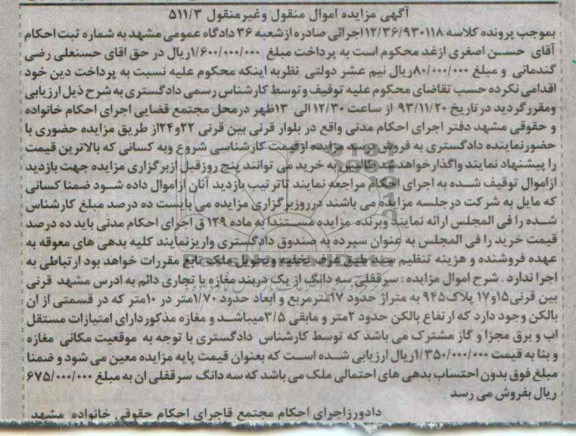 آگهی مزایده اموال منقول وغیرمنقول ۵۱۱/۳
بموجب پرونده کلاسه ۱۲/۳۶/۹۳۰۱۱۸اجرائی صادره ازشعبه ۳۶ دادگاه عمومی مشهد به شماره ثبت احکام
آقای حسن اصغری ازغد محکوم است به پرداخت مبلغ ۱/۶۰۰/۰۰۰/۰۰۰ریال در حق اقای حسنعلی رضی
گندمانی و مبلغ ۸۰/۰۰۰/۰۰۰ریال نیم عشر دولتی نظربه اینکه محکوم علیه نسبت به پرداخت دین خود
اقدامی نکرده حسب تقاضای محکوم علیه توقیف و توسط کارشناس رسمی دادگستری به شرح ذیل ارزیابی
ومقررگردید درتاریخ ۹۳/۱۱/۲۰ از ساعت ۱۲/۳۰ الی ۱۳ظهر درمحل مجتمع قضایی اجرای احکام خانواده
و حقوقی مشهد دفتر اجرای احکام مدنی واقع در بلوار قرنی بین قرنی ۲۲و۲۴از طریق مزایده حضوری با
حضورنماینده دادگستری به فروش برسد مزایده ازقیمت کارشناسی شروع وبه کسانی که بالاترین قیمت
را پیشنهاد نمایند واگذارخواهدشد طالبین به خرید می توانند پنج روزقبل ازبرگزاری مزایده جهت بازدید
ازاموال توقیف شده به اجرای احکام مراجعه نمایند تاترتیب بازدید آنان ازاموال داده شود ضمنا کسانی
که مایل به شرکت درجلسه مزایده می باشند درروزبرگزاری مزایده می بایست ده درصد مبلغ کارشناس
شده را فی المجلس ارائه نمایند وبرنده مزایده مستندا به ماده ۱۲۹ ق اجرای احکام مدنی باید ده درصد
قیمت خرید را فی المجلس به عنوان سپرده به صندوق دادگستری واریزنمایند کلیه بدهی های معوقه به
عهده فروشنده و هزینه تنظیم سند طبق عرف تخلیه وتحویل ملک تابع مقررات خواهد بود ارتباطی به
اجرا ندارد . شرح اموال مزایده : سرقفلی سه دانگ از یک دربند مغازه یا تجاری دائم به ادرس مشهد قرنی
بین قرنی۱۵و۱۷ پلاک۹۴۵ به متراژ حدود ۱۷مترمربع و ابعاد حدود ۱/۷۰متر در ۱۰متر که در قسمتی از ان
بالکن وجود دارد که ارتفاع بالکن حدود ۲متر و مابقی ۳/۵میباشد و مغازه مذکوردارای امتیازات مستقل
اب و برق مجزا و گاز مشترک می باشد که توسط کارشناس دادگستری با توجه به موقعیت مکانی مغازه
و بنا به قیمت ۱/۳۵۰/۰۰۰/۰۰۰ریال ارزیابی شده است که بعنوان قیمت پایه مزایده معین می شود و ضمنا
مبلغ فوق بدون احتساب بدهی های احتمالی ملک می باشد که سه دانگ سرقفلی ان به مبلغ ۶۷۵/۰۰۰/۰۰۰
ریال بفروش می رسد
دادورزاجرای احکام مجتمع قاجرای احکام حقوقی خانواده مشهد